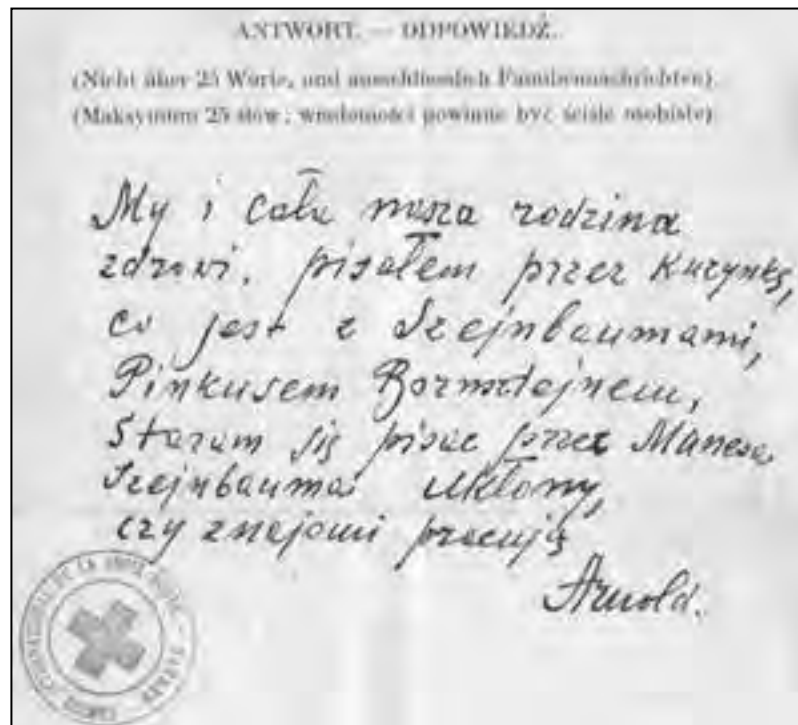 ANTWORT. — ODPOWIEDŹ.
(Nicht über 25 Worte, und ausschliesslich Familiennachrichten).
(Maksymum 25 słów; wiadomości powinne być ściśle osobiste)
My i cała nasza rodzina
zdrowi. pisałem przez Kuzynkę,
co jest z Szejnbaumami,
Pinkusem Bornsztejnem,
Staram się pisać przez Manesa
Szejnbauma Ukłony,
czy znajomi pracują
Arnold.
COMITÉ INTERNATIONAL DE LA CROIX-ROUGE - GENÈVE